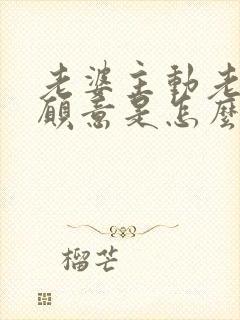 老婆主動老
願意是怎麼
榴芒